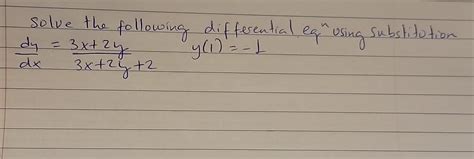 Solve the following differential eqⁿ using substitution
dy/dx = (3x+2y)/(3x+2y+2)    y(1) = -1